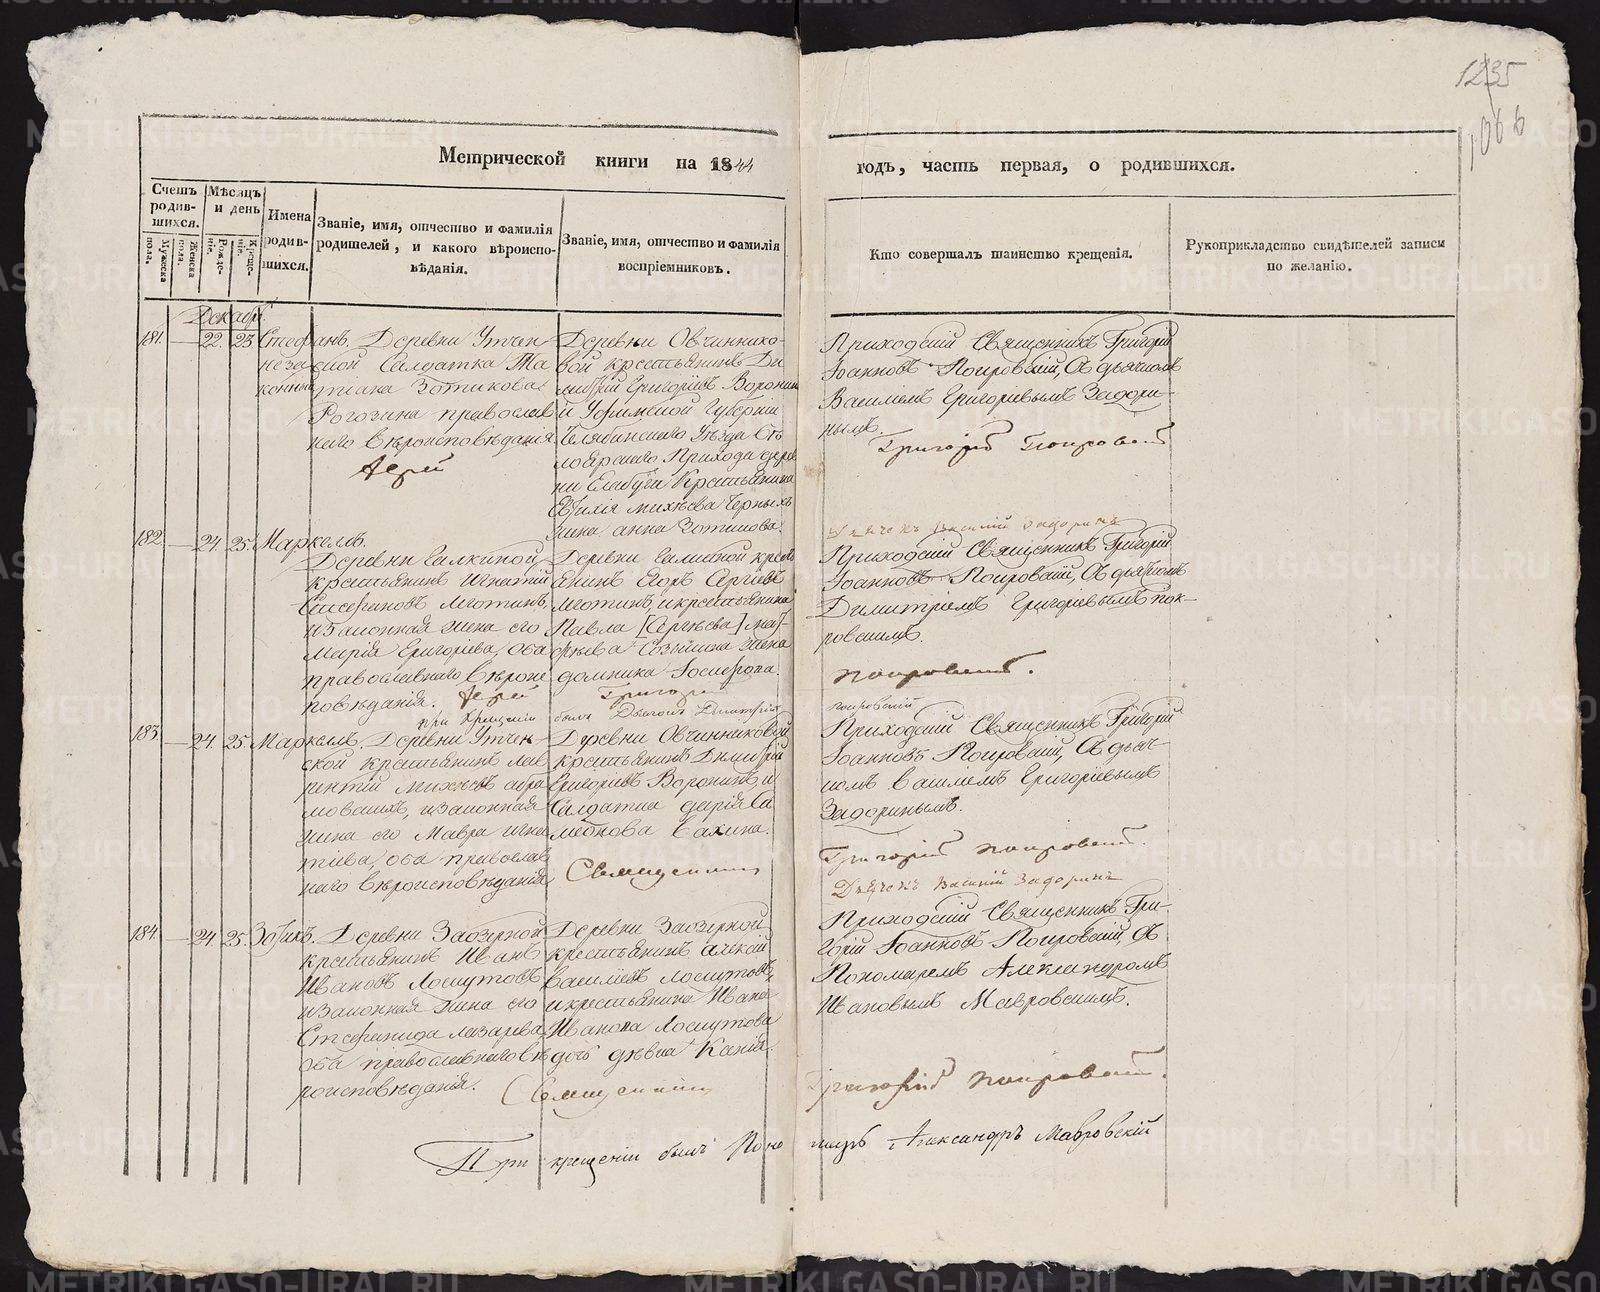 1235
1066
Метрической книги на 1844
годъ, часть первая, о родившихся.
Счетъ родив-шихся.
Мужеска пола.
Женска пола.
Мѣсяцъ и день
Рожде-ніе.
Креще-ніе.
Имена родив-шихся.
Званіе, имя, отчество и фамилія
родителей, и какого вѣроиспо-
вѣданія.
Званіе, имя, отчество и фамилія
воспріемниковъ.
Кто совершалъ таинство крещенія.
Рукоприкладство свидѣтелей записи
по желанію.
Декабрь
181. — 22. 23.
Стефанъ.
незаконный
Деревни Утчен
ской Салдатка Та
тіана Зотикова
Рогозина православ
наго вѣроисповѣданія
Іерей
Деревни Овчиннико-
вой крестьянинъ Ди
митрій Григорьевъ Воронин
и Уфимской Губерніи
Челябинскаго Уѣзда
Прихода дерев
ни Крестьянина
Михѣева Черныхъ
жена Анна Зотикова.
Приходскій Священникъ Григорій
Іоанновъ Покровскій, Съ дьячкомъ
Василіемъ Григорьевымъ Задори-
нымъ.
Григорій Покровскій
Дьячекъ Василій Задоринъ
182. — 24. 25. Маркеллъ.
Деревни Галкиной
крестьянинъ Игнатій
Мотинъ,
и законная жена его
Марія Григорьева, оба
православнаго вѣроис
повѣданія. Іерей
Деревни Галкиной кресть
янинъ Егоръ Сергѣевъ
Мотинъ, и крестьянина
Павла [Сергѣева]
жена
домника Іосифова.
Григорій
Приходскій Священникъ Григорій
Іоанновъ Покровскій, Съ дьячкомъ
Димитріемъ Григорьевымъ Пок-
ровскимъ.
Покровскій.
при Крещеніи былъ Дьячокъ Димитрій
Покровскій
183. — 24. 25. Маркеллъ.
Деревни Утчен-
ской крестьянинъ Лав
рентій Михѣевъ Абра
мовскихъ, и законная
жена его Мавра Игна
тіева, оба православ
наго вѣроисповѣданія
Деревни Овчинниковой
крестьянинъ Димитрій
Григорьевъ Воронинъ, и
Салдатка Дарія Са
мсонова Бахина.
Священникъ
Приходскій Священникъ Григорій
Іоанновъ Покровскій, Съ дьяч-
комъ Василіемъ Григорьевымъ
Задоринымъ.
Григорій Покровскій.
Дьячекъ Василій Задоринъ
184. — 24. 25. Зотикъ.
Деревни Заозерной
крестьянинъ Иванъ
Ивановъ Лоскутовъ
и законная жена его
Стефанида Лазарева
оба православнаго вѣ
роисповѣданія.
Деревни Заозерной
крестьянинъ Алексій
Васильевъ Лоскутовъ,
и крестьянина Ивана
Иванова Лоскутова
дочь дѣвка Ксенія.
Священникъ
Приходскій Священникъ Гри-
горій Іоанновъ Покровскій, Съ
Пономаремъ Александромъ
Ивановымъ Мавровскимъ.
Григорій Покровскій.
При крещеніи былъ Пономарь Александръ Мавровскій
METRIKI.GASO-URAL.RU